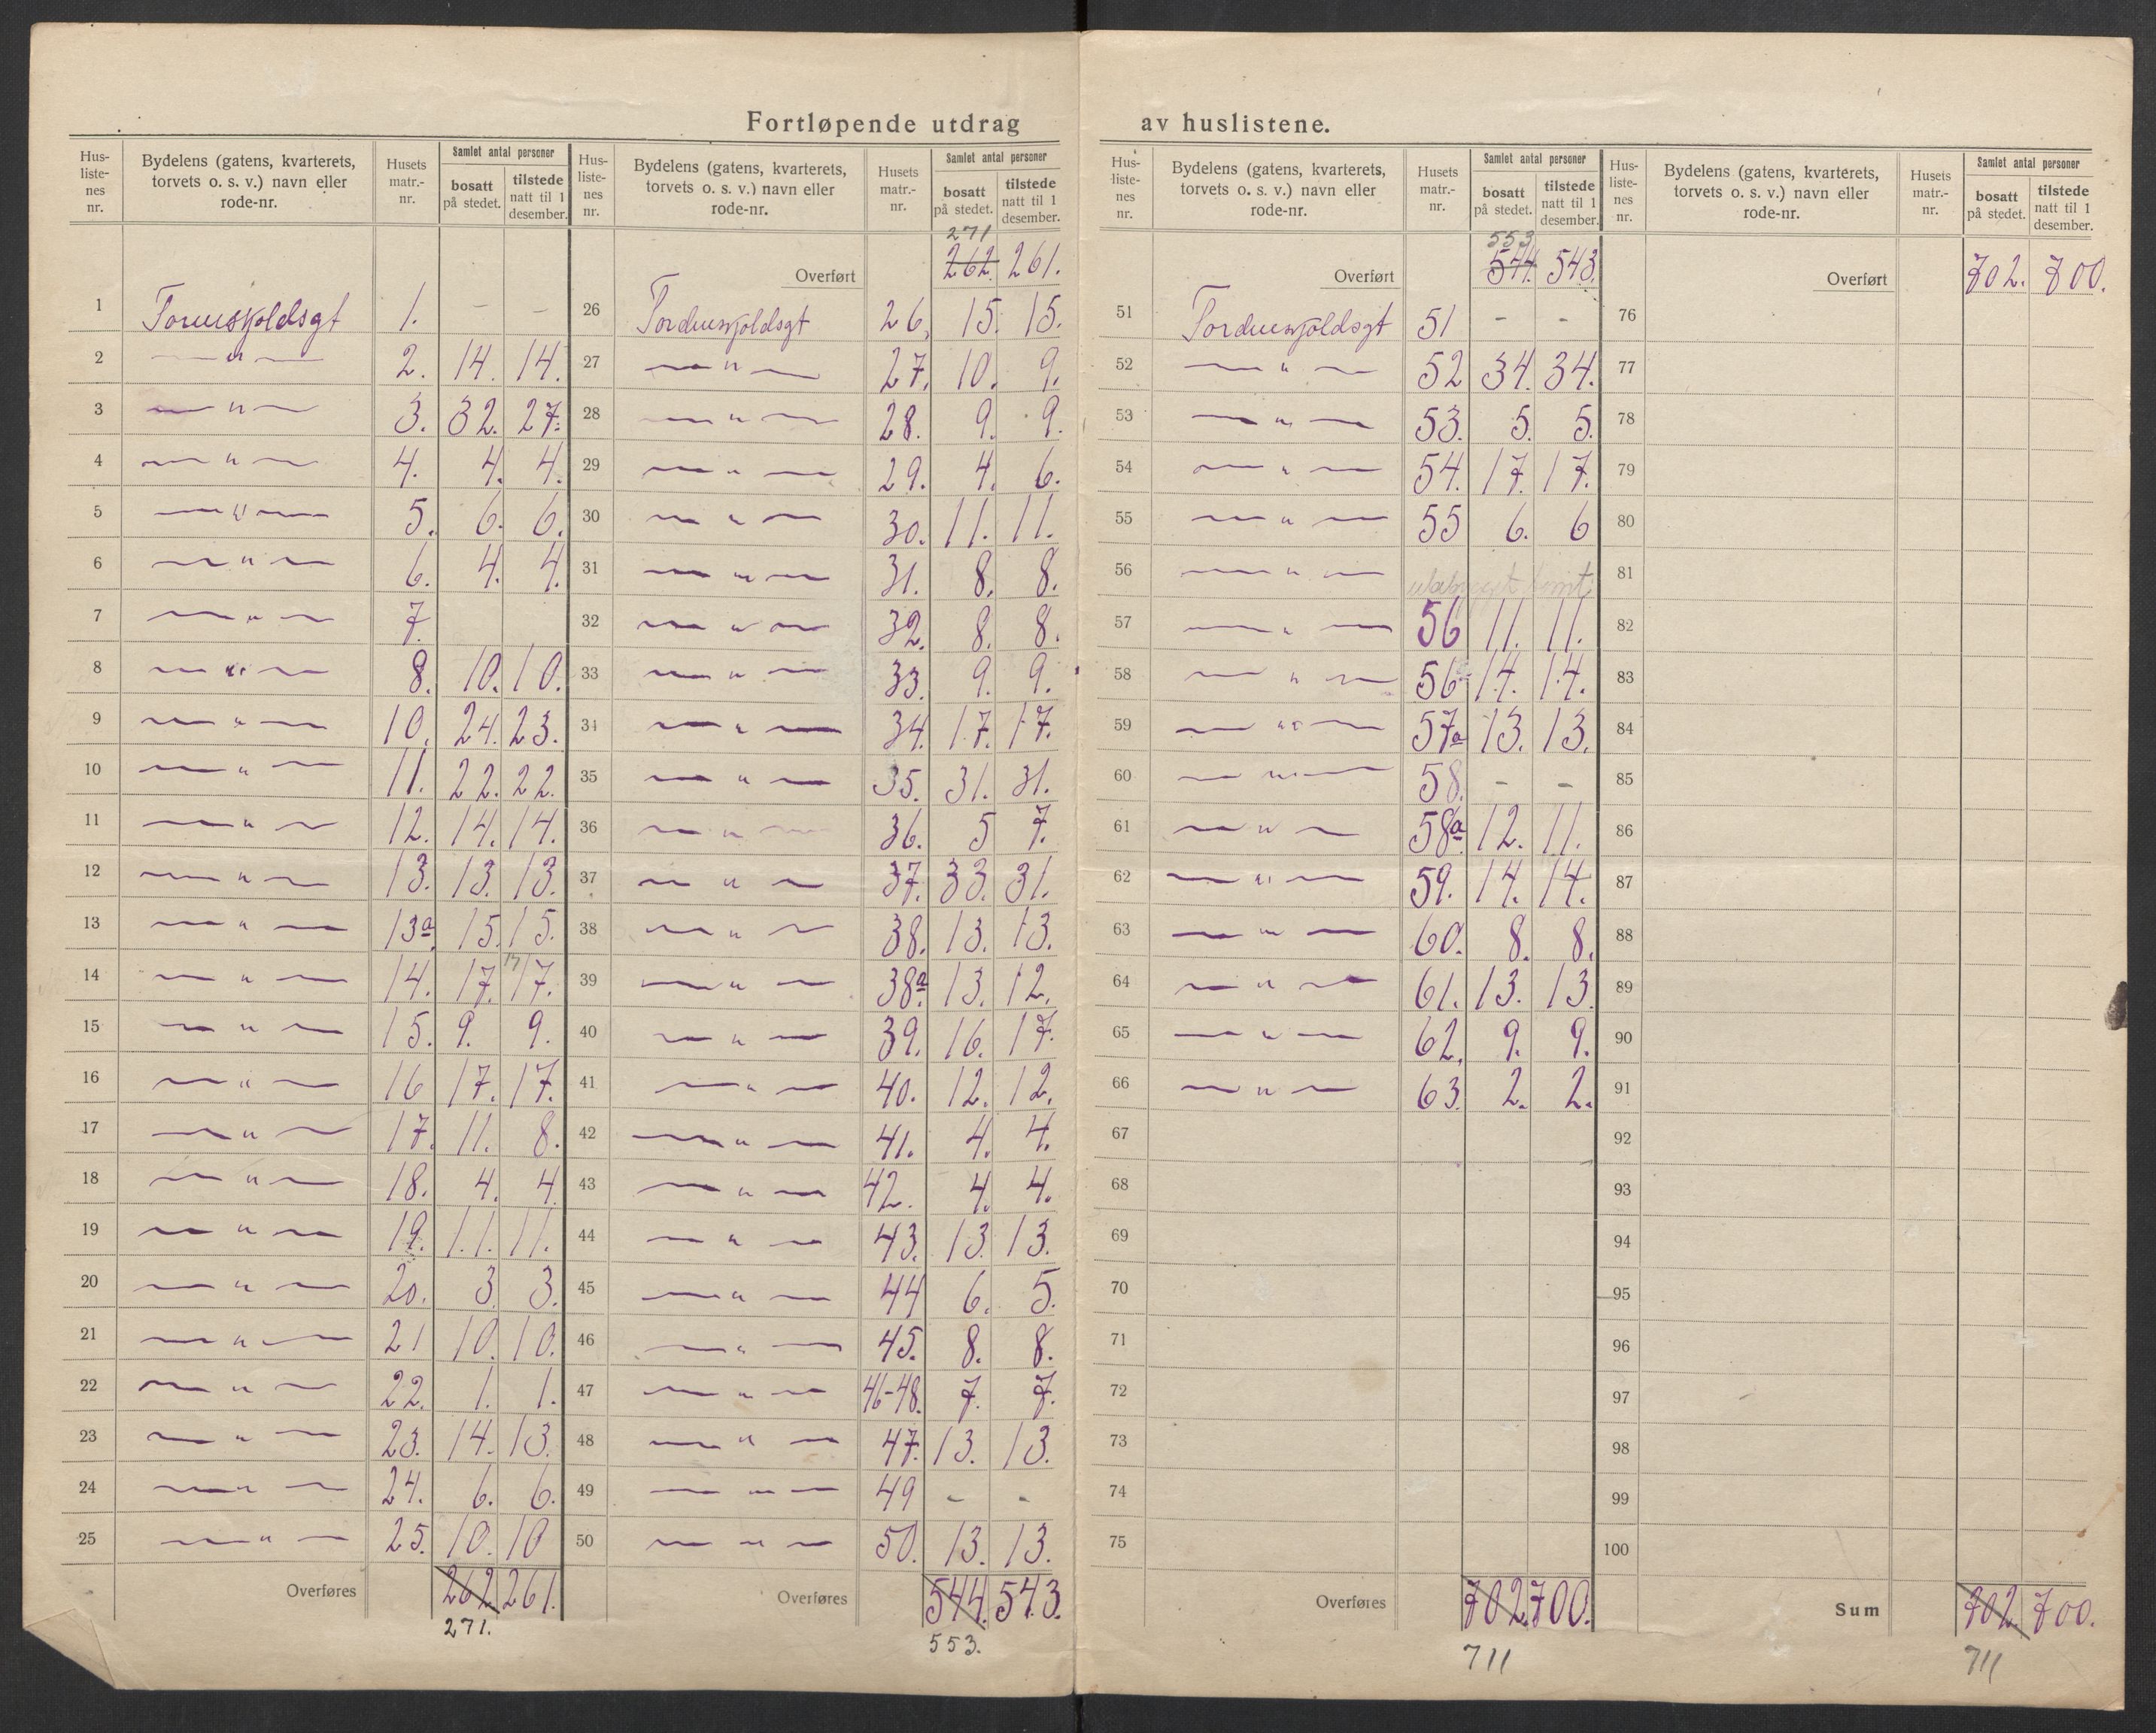 Fortløpende utdrag av huslistene.
Hus-listenes nr. | Bydelens (gatens, kvarterets, torvets o. s. v.) navn eller rode-nr. | Husets matr.-nr. | Samlet antal personer: bosatt på stedet. | tilstede natt til 1 desember.
1 Tordenskjoldsgt 1. - -
2 — " — 2. 14. 14.
3 — " — 3. 32. 27.
4 — " — 4. 4. 4.
5 — " — 5. 6. 6.
6 — " — 6. 4. 4.
7 — " — 7.
8 — " — 8. 10. 10.
9 — " — 10. 24. 23.
10 — " — 11. 22. 22.
11 — " — 12. 14. 14.
12 — " — 13. 13. 13.
13 — " — 13a 15. 15.
14 — " — 14. 17. 17 17.
15 — " — 15. 9. 9.
16 — " — 16 17. 17.
17 — " — 17. 11. 8.
18 — " — 18. 4. 4
19 — " — 19. 11. 11.
20 — " — 20. 3. 3.
21 — " — 21 10. 10.
22 — " — 22. 1. 1.
23 — " — 23. 14. 13.
24 — " — 24. 6. 6.
25 — " — 25. 10. 10
Overføres 262. 261.
271.
Hus-listenes nr. | Bydelens (gatens, kvarterets, torvets o. s. v.) navn eller rode-nr. | Husets matr.-nr. | Samlet antal personer: bosatt på stedet. | tilstede natt til 1 desember.
271
Overført 262. 261.
26 Tordenskjoldsgt 26. 15. 15.
27 — " — 27. 10. 9.
28 — " — 28. 9. 9.
29 — " — 29. 4. 6.
30 — " — 30. 11. 11.
31 — " — 31. 8. 8.
32 — " — 32. 8. 8.
33 — " — 33. 9. 9.
34 — " — 34. 17. 17.
35 — " — 35. 31. 31.
36 — " — 36. 5 7.
37 — " — 37. 33. 31.
38 — " — 38. 13. 13.
39 — " — 38a 13. 12.
40 — " — 39. 16. 17.
41 — " — 40. 12. 12.
42 — " — 41. 4. 4.
43 — " — 42. 4. 4.
44 — " — 43. 13. 13.
45 — " — 44 6. 5.
46 — " — 45. 8. 8.
47 — " — 46-48. 7. 7.
48 — " — 47. 13. 13.
49 — " — 49 - -
50 — " — 50. 13. 13.
Overføres 544. 543.
553.
Hus-listenes nr. | Bydelens (gatens, kvarterets, torvets o. s. v.) navn eller rode-nr. | Husets matr.-nr. | Samlet antal personer: bosatt på stedet. | tilstede natt til 1 desember.
553
Overført 544. 543.
51 Tordenskjoldsgt 51 - -
52 — " — 52 34. 34.
53 — " — 53. 5. 5.
54 — " — 54. 17. 17.
55 — " — 55 6. 6
56 — " — tomt
57 — " — 56 11. 11.
58 — " — 56a 14. 14.
59 — " — 57a 13. 13.
60 — " — 58. - -
61 — " — 58a 12. 11.
62 — " — 59. 14. 14.
63 — " — 60. 8. 8.
64 — " — 61. 13. 13
65 — " — 62. 9. 9.
66 — " — 63. 2. 2.
67
68
69
70
71
72
73
74
75
Overføres 702. 700.
711
Hus-listenes nr. | Bydelens (gatens, kvarterets, torvets o. s. v.) navn eller rode-nr. | Husets matr.-nr. | Samlet antal personer: bosatt på stedet. | tilstede natt til 1 desember.
Overført 702. 700.
76
77
78
79
80
81
82
83
84
85
86
87
88
89
90
91
92
93
94
95
96
97
98
99
100
Sum 702. 700.
711